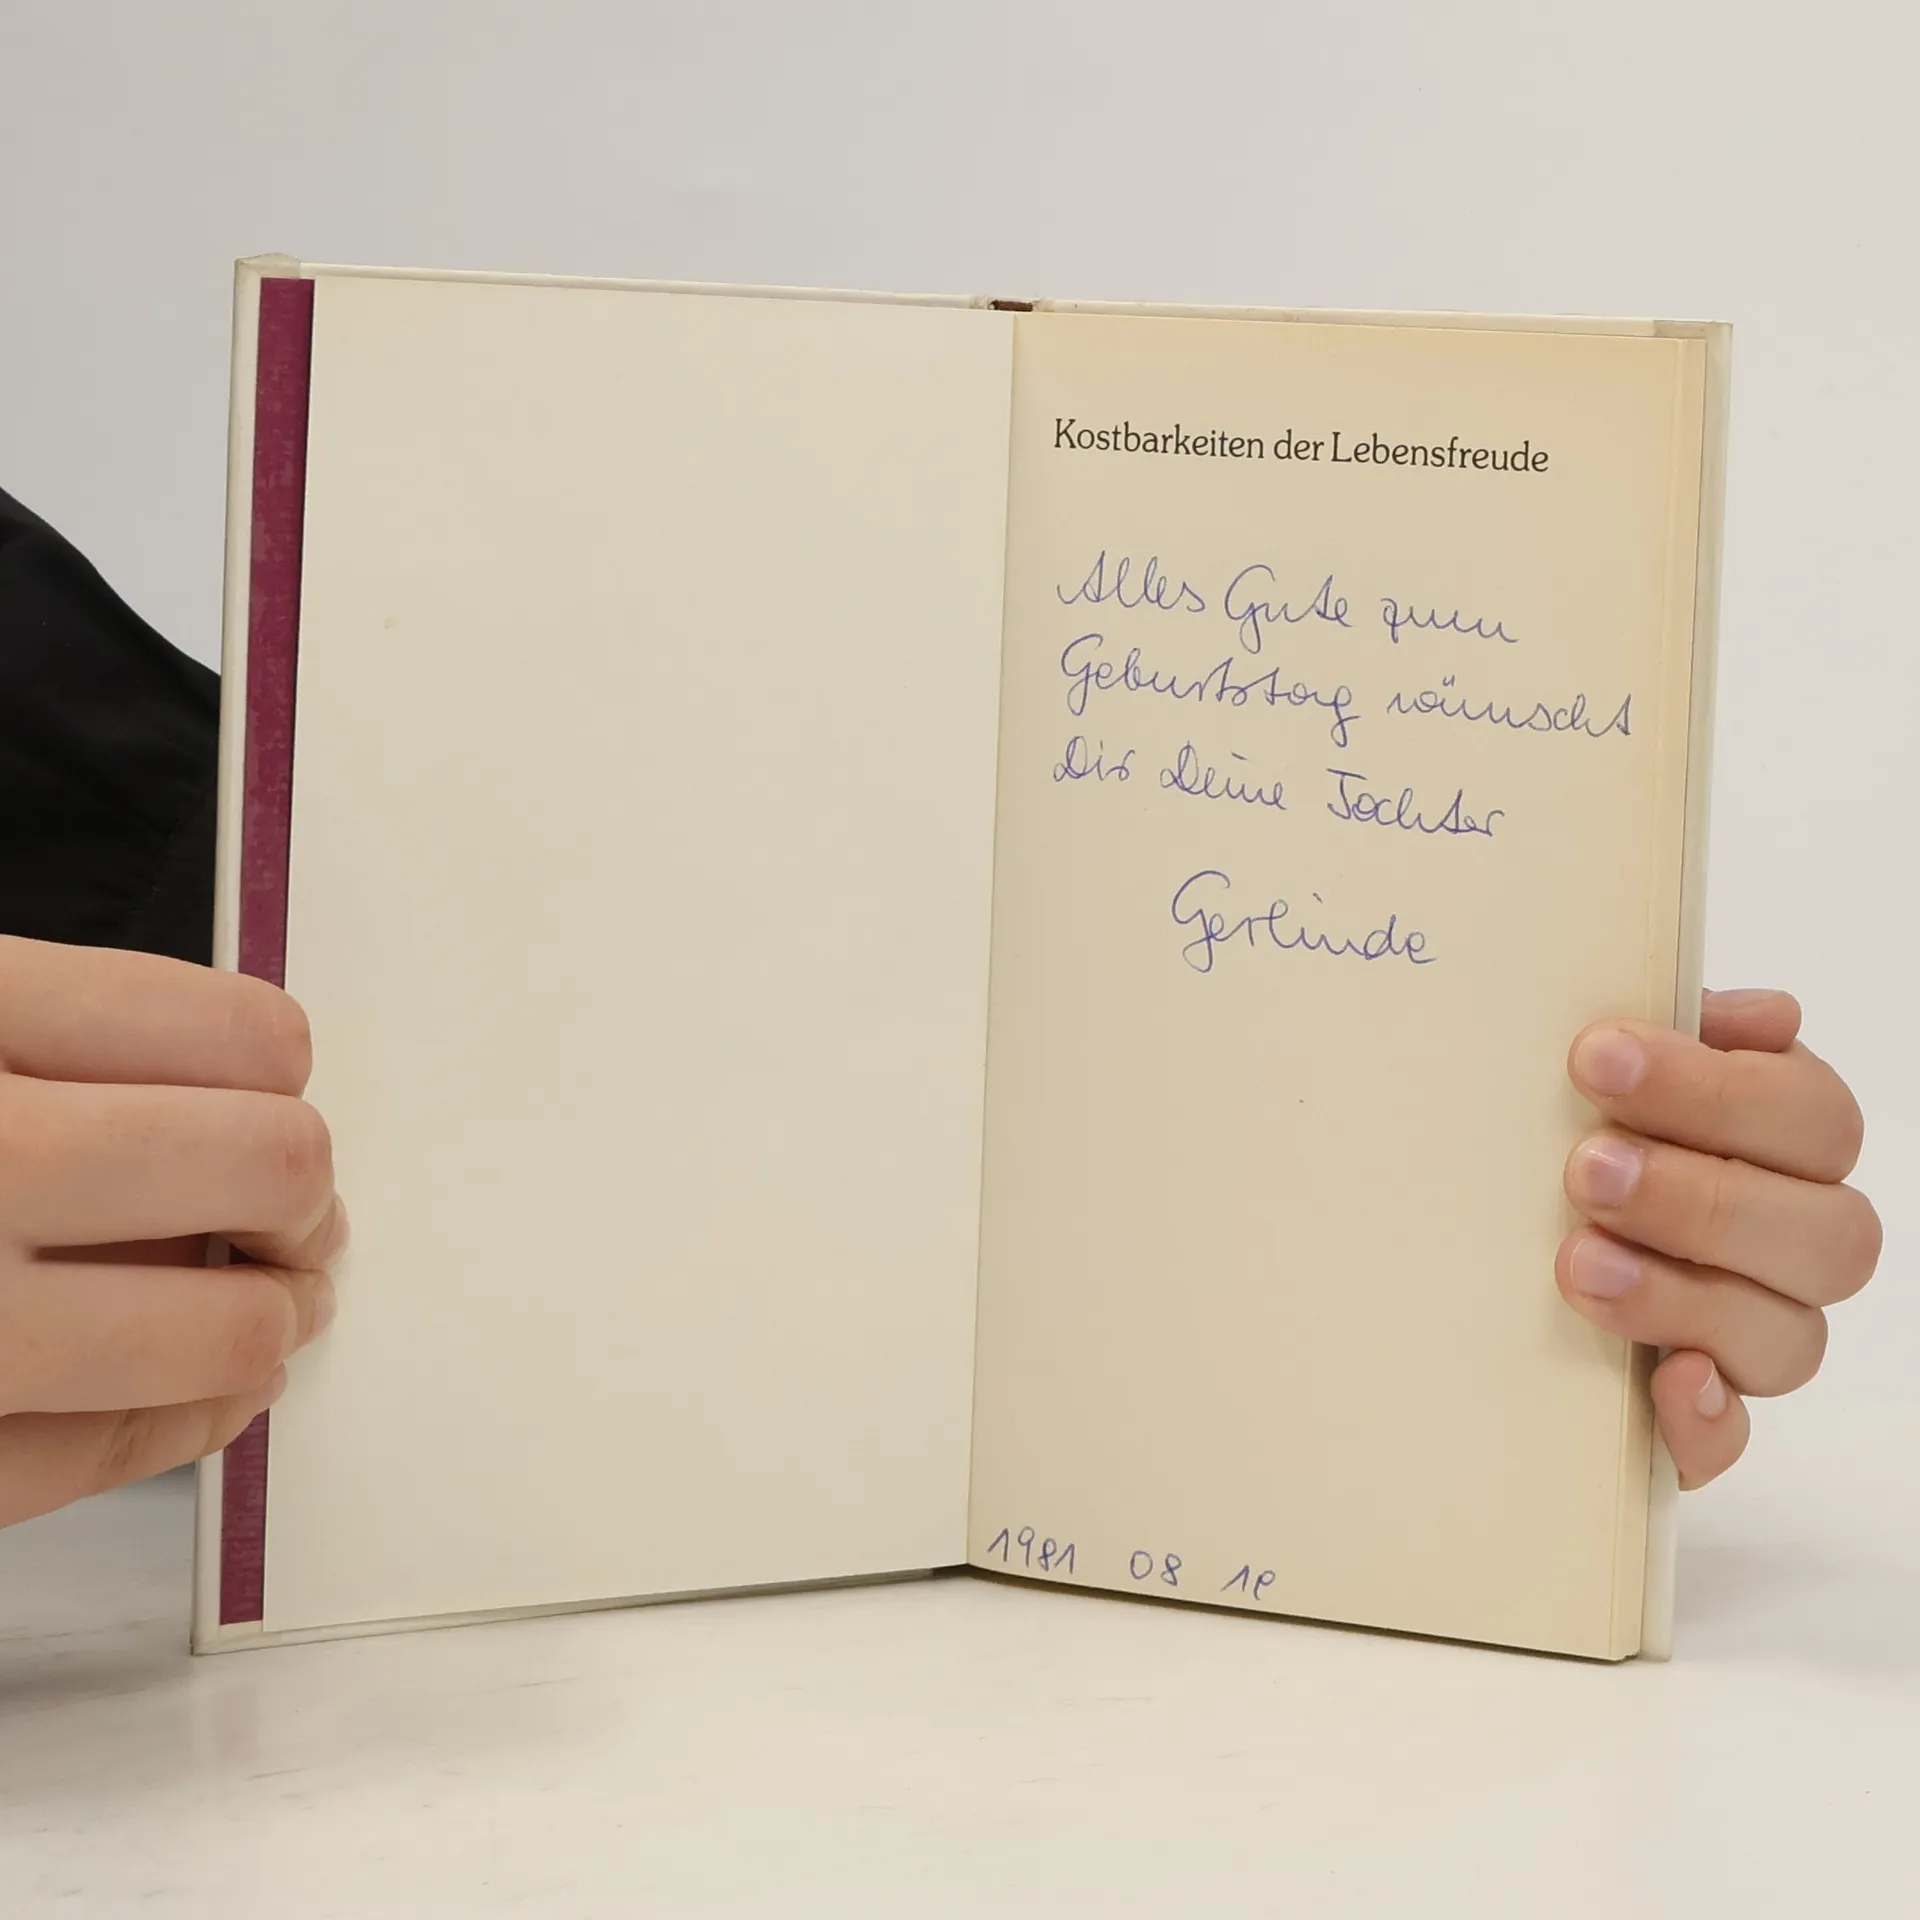 Kostbarkeiten der Lebensfreude
Alles Gute zum
Geburtstag wünscht
Dir Deine Tochter
Gerlinde
1981 08 19